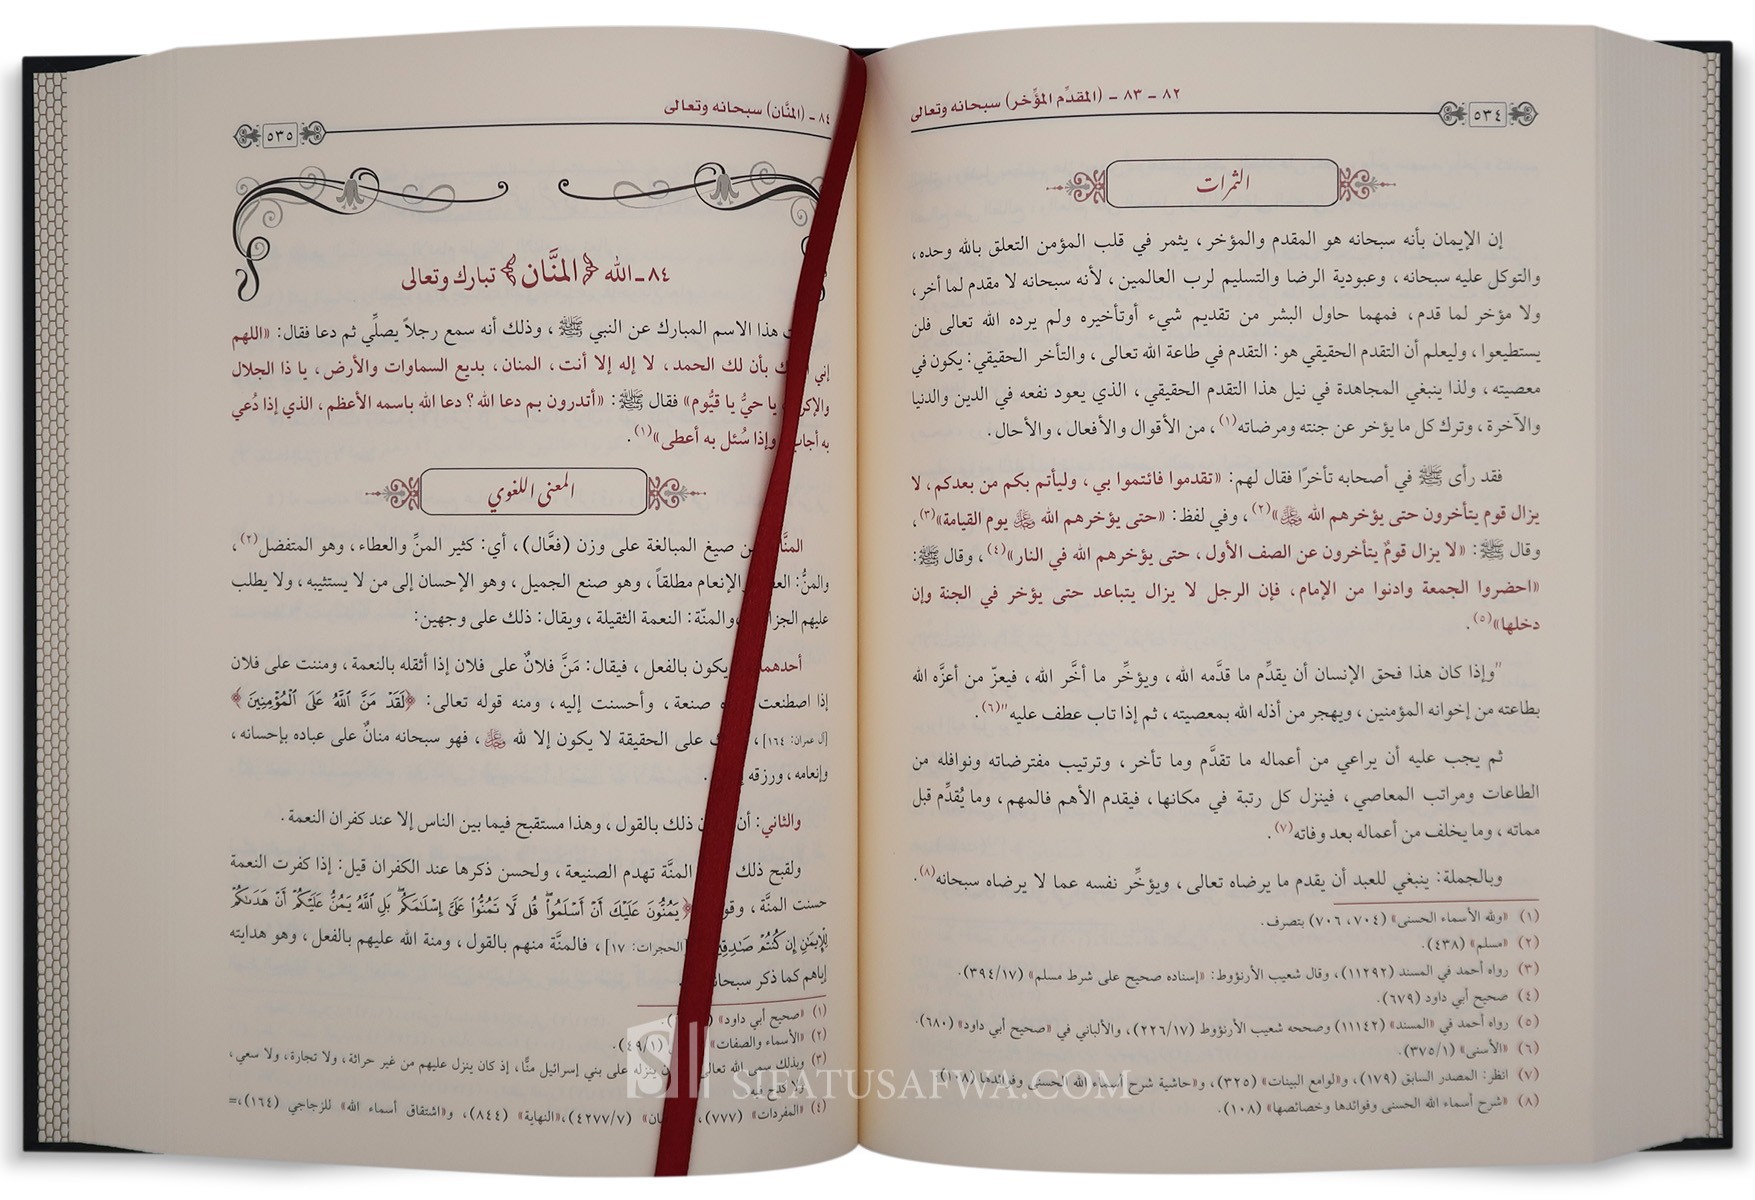 ٨٢ - ٨٣ - (المقدِّم المؤِّخر) سبحانه وتعالى
٥٣٤
الثمرات
إن الإيمان بأنه سبحانه هو المقدم والمؤخر، يثمر في قلب المؤمن التعلق بالله وحده،
والتوكل عليه سبحانه، وعبودية الرضا والتسليم لرب العالمين، لأنه سبحانه لا مقدم لما أخر،
ولا مؤخر لما قدم، فمهما حاول البشر من تقديم شيء أوتأخيره ولم يرده الله تعالى فلن
يستطيعوا، وليعلم أن التقدم الحقيقي هو: التقدم في طاعة الله تعالى، والتأخر الحقيقي: يكون في
معصيته، ولذا ينبغي المجاهدة في نيل هذا التقدم الحقيقي، الذي يعود نفعه في الدين والدنيا
والآخرة، وترك كل ما يؤخر عن جنته ومرضاته(١)، من الأقوال والأفعال، والأحال.
فقد رأى ﷺ في أصحابه تأخرًا فقال لهم: «تقدموا فائتموا بي، وليأتم بكم من بعدكم، لا
يزال قوم يتأخرون حتى يؤخرهم الله ﷻ»(٢)، وفي لفظ: «حتى يؤخرهم الله ﷻ يوم القيامة»(٣)،
وقال ﷺ: «لا يزال قومٌ يتأخرون عن الصف الأول، حتى يؤخرهم الله في النار»(٤)، وقال ﷺ:
«احضروا الجمعة وادنوا من الإمام، فإن الرجل لا يزال يتباعد حتى يؤخر في الجنة وإن
دخلها»(٥).
"وإذا كان هذا فحق الإنسان أن يقدِّم ما قدَّمه الله، ويؤخِّر ما أخَّر الله، فيعزّ من أعزَّه الله
بطاعته من إخوانه المؤمنين، ويهجر من أذله الله بمعصيته، ثم إذا تاب عطف عليه"(٦).
ثم يجب عليه أن يراعي من أعماله ما تقدَّم وما تأخر، وترتيب مفترضاته ونوافله من
الطاعات ومراتب المعاصي، فينزل كل رتبة في مكانها، فيقدم الأهم فالمهم، وما يُقدِّم قبل
مماته، وما يخلف من أعماله بعد وفاته(٧).
وبالجملة: ينبغي للعبد أن يقدم ما يرضاه تعالى، ويؤخِّر نفسه عما لا يرضاه سبحانه(٨).
(١) «ولله الأسماء الحسنى» (٧٠٤، ٧٠٦) بتصرف.
(٢) «مسلم» (٤٣٨).
(٣) رواه أحمد في المسند (١١٢٩٢)، وقال شعيب الأرنؤوط: «إسناده صحيح على شرط مسلم» (٣٩٤/١٧).
(٤) صحيح أبي داود (٦٧٩).
(٥) رواه أحمد في «المسند» (١١١٤٢) وصححه شعيب الأرنؤوط (٢٢٦/١٧)، والألباني في «صحيح أبي داود» (٦٨٠).
(٦) «الأسنى» (٣٧٥/١).
(٧) انظر: المصدر السابق (١٧٩)، و«لوامع البينات» (٣٢٥)، و«حاشية شرح أسماء الله الحسنى وفوائدها (١٠٨)
(٨) «شرح أسماء الله الحسنى وفوائدها وخصائصها» (١٠٨).
٨٤ - (المنَّان) سبحانه وتعالى
٥٣٥
٨٤ - الله ﴿المنَّان﴾ تبارك وتعالى
هذا الاسم المبارك عن النبي ﷺ، وذلك أنه سمع رجلاً يصلِّي ثم دعا فقال: «اللهم
إني بأن لك الحمد، لا إله إلا أنت، المنان، بديع السماوات والأرض، يا ذا الجلال
يا حيُّ يا قيُّوم» فقال ﷺ: «أتدرون بم دعا الله؟ دعا الله باسمه الأعظم، الذي إذا دُعي
به وإذا سُئل به أعطى»(١).
المعنى اللغوي
من صيغ المبالغة على وزن (فعَّال)، أي: كثير المنِّ والعطاء، وهو المتفضل(٢)،
والمنُّ: والإنعام مطلقاً، وهو صنع الجميل، وهو الإحسان إلى من لا يستثيبه، ولا يطلب
عليهم والمنّة: النعمة الثقيلة، ويقال: ذلك على وجهين:
يكون بالفعل، فيقال: مَنَّ فلانٌ على فلان إذا أثقله بالنعمة، ومننت على فلان
إذا اصطنعت صنعة، وأحسنت إليه، ومنه قوله تعالى: ﴿لَقَدْ مَنَّ اللَّهُ عَلَى الْمُؤْمِنِينَ﴾
[آل عمران: ١٦٤]، على الحقيقة لا يكون إلا لله ﷻ، فهو سبحانه منانٌ على عباده بإحسانه،
وإنعامه، ورزقه
والثاني: ذلك بالقول، وهذا مستقبح فيما بين الناس إلا عند كفران النعمة.
ولقبح ذلك المنَّة تهدم الصنيعة، ولحسن ذكرها عند الكفران قيل: إذا كفرت النعمة
حسنت المنَّة، ﴿يَمُنُّونَ عَلَيْكَ أَنْ أَسْلَمُوا قُل لَّا تَمُنُّوا عَلَيَّ إِسْلَامَكُم بَلِ اللَّهُ يَمُنُّ عَلَيْكُمْ أَنْ هَدَاكُمْ
لِلْإِيمَانِ إِن كُنتُمْ صَادِقِينَ [الحجرات: ١٧]، فالمنَّة منهم بالقول، ومنة الله عليهم بالفعل، وهو هدايته
إياهم كما ذكر
(١) «صحيح أبي داود»
(٢) «الأسماء والصفات» (٤٩/١).
(٣) وبذلك سمى الله على بني إسرائيل منًّا، إذ كان ينزل عليهم من غير حراثة، ولا تجارة، ولا سعي،
ولا كدح فيه.
(٤) «المفردات» (٧٧٧)، (٤٢٧٧/٧)، «النهاية» (٨٤٤)، و«اشتقاق أسماء الله» للزجاجي (١٦٤)،=
SIFATUSAFWA.COM